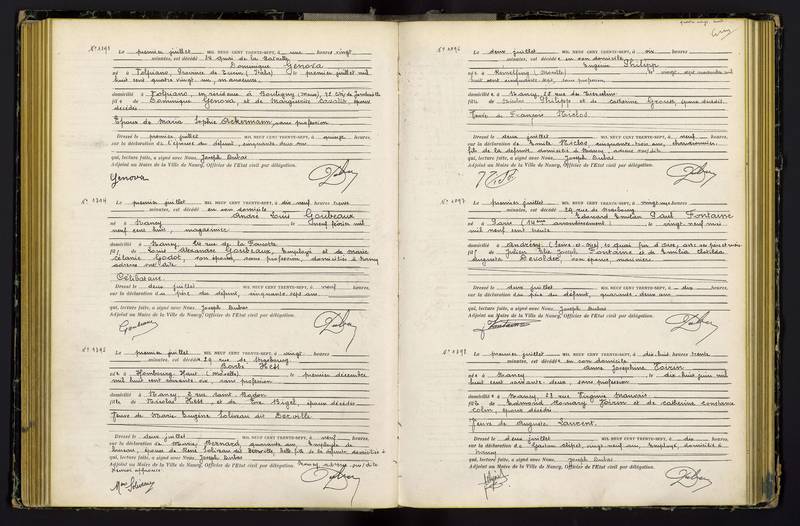 N° 1393
Le premier juillet MIL NEUF CENT TRENTE-SEPT, à une heures vingt
minutes, est décédé 14 Quai de la Bataille
Dominique Genova
né à Volpiano, Province de Turin (Italie) le premier juillet mil
huit cent quatre vingt un, manœuvre
domicilié à Volpiano, en résidence à Bouligny (Meuse),
fils de Dominique Genova, et de Marguerite époux
décédés
Epoux de Maria Sophie Ackermann, sans profession
Dressé le premier juillet MIL NEUF CENT TRENTE-SEPT, à quinze heures,
sur la déclaration de l'épouse du défunt, cinquante deux ans
qui, lecture faite, a signé avec Nous, Joseph Dubas
Adjoint au Maire de la Ville de Nancy, Officier de l'Etat civil par délégation.
Genova
N° 1394
Le premier juillet MIL NEUF CENT TRENTE-SEPT, à dix neuf heures trente
minutes, est décédé en son domicile
André Louis Goubeaux
né à Nancy le neuf février mil
neuf cent huit, magasinier
domicilié à Nancy, rue de la
fils de Louis Alexandre Goubeaux, Employé et de Marie
Mélanie Godot, son épouse, sans profession, domiciliés à Nancy
adresse sus dite
Célibataire
Dressé le deux juillet MIL NEUF CENT TRENTE-SEPT, à neuf heures,
sur la déclaration du père du défunt, cinquante sept ans
qui, lecture faite, a signé avec Nous, Joseph Dubas
Adjoint au Maire de la Ville de Nancy, Officier de l'Etat civil par délégation.
Goubeaux
N° 1395
Le premier juillet MIL NEUF CENT TRENTE-SEPT, à vingt heures
minutes, est décédée 29 rue de Strasbourg
Barbe Hess
née à Hombourg Haut (Moselle) le premier décembre
mil huit cent soixante six, sans profession
domiciliée à Nancy, 2 rue Saint Nodon
fille de Nicolas Hess, et de Eve Bigel, époux décédés
Veuve de Marie Eugène Soliveau dit Derville
Dressé le deux juillet MIL NEUF CENT TRENTE-SEPT, à neuf heures,
sur la déclaration de Bernard, quarante ans, Employée de
bureau, épouse de René Soliveau dit Derville, belle fille de la défunte, domiciliée à
qui, lecture faite, a signé avec Nous, Joseph Dubas Nancy, adresse sus dite
Adjoint au Maire de la Ville de Nancy, Officier de l'Etat civil par délégation.
N° 1396
Le deux juillet MIL NEUF CENT TRENTE-SEPT, à six heures
minutes, est décédée en son domicile
Eugénie Philipp
née à (Moselle) le vingt sept
huit cent cinquante sept, sans profession
domiciliée à Nancy,
fille de Nicolas Philippe et de Catherine époux décédés
Veuve de François Niclos
Dressé le deux juillet MIL NEUF CENT TRENTE-SEPT, à neuf heures,
sur la déclaration de Emile Niclos, cinquante trois ans, chaudronnier,
fils de la défunte, domicilié à Nancy, adresse sus dite
qui, lecture faite, a signé avec Nous, Joseph Dubas
Adjoint au Maire de la Ville de Nancy, Officier de l'Etat civil par délégation.
N° 1397
Le premier juillet MIL NEUF CENT TRENTE-SEPT, à vingt-une heures
minutes, est décédé 29 rue de Strasbourg
Edmond Emilien Paul Fontaine
né à Paris (14ème arrondissement) le vingt neuf mai
mil neuf cent trente
domicilié à Andrésy (Seine et Oise) avec ses père et mère
fils de Julien Joseph Fontaine et de Emilie Clotilde
Augusta Devolder, son épouse, mariniers
Dressé le deux juillet MIL NEUF CENT TRENTE-SEPT, à dix heures,
sur la déclaration du père du défunt, quarante deux ans
qui, lecture faite, a signé avec Nous, Joseph Dubas
Adjoint au Maire de la Ville de Nancy, Officier de l'Etat civil par délégation.
Fontaine
N° 1398
Le premier juillet MIL NEUF CENT TRENTE-SEPT, à dix-huit heures trente
minutes, est décédée en son domicile
Anne Joséphine Voirin
née à Nancy le dix-huit juin mil
huit cent soixante-deux, sans profession
domiciliée à Nancy, 21 rue Virginie Mauvais
fille de Edmond Voirin et de Catherine Constance
Colin, époux décédés
Veuve de Auguste Laurent
Dressé le deux juillet MIL NEUF CENT TRENTE-SEPT, à dix heures,
sur la déclaration de Gaston vingt neuf ans, Employé, domicilié à
Nancy
qui, lecture faite, a signé avec Nous, Joseph Dubas
Adjoint au Maire de la Ville de Nancy, Officier de l'Etat civil par délégation.